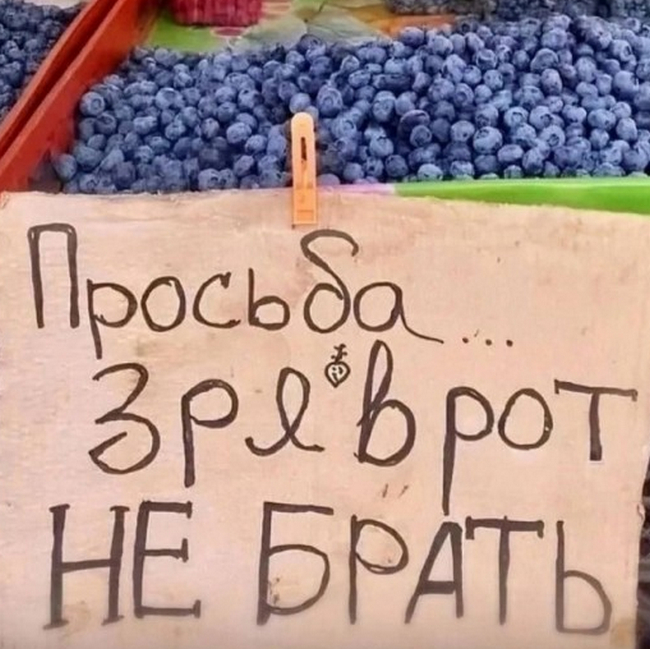 Просьба...
Зря в рот
НЕ БРАТЬ